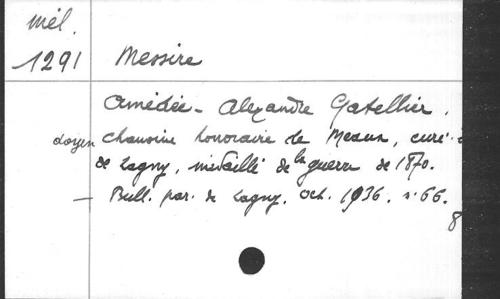 mél.
1291
Messire
Amédée-Alexandre Gatellier.
chanoine honoraire de Meaux, curé-
doyen
de Lagny, médaillé de la guerre de 1870.
— Bull. par. de Lagny, oct. 1936, n° 66.
8